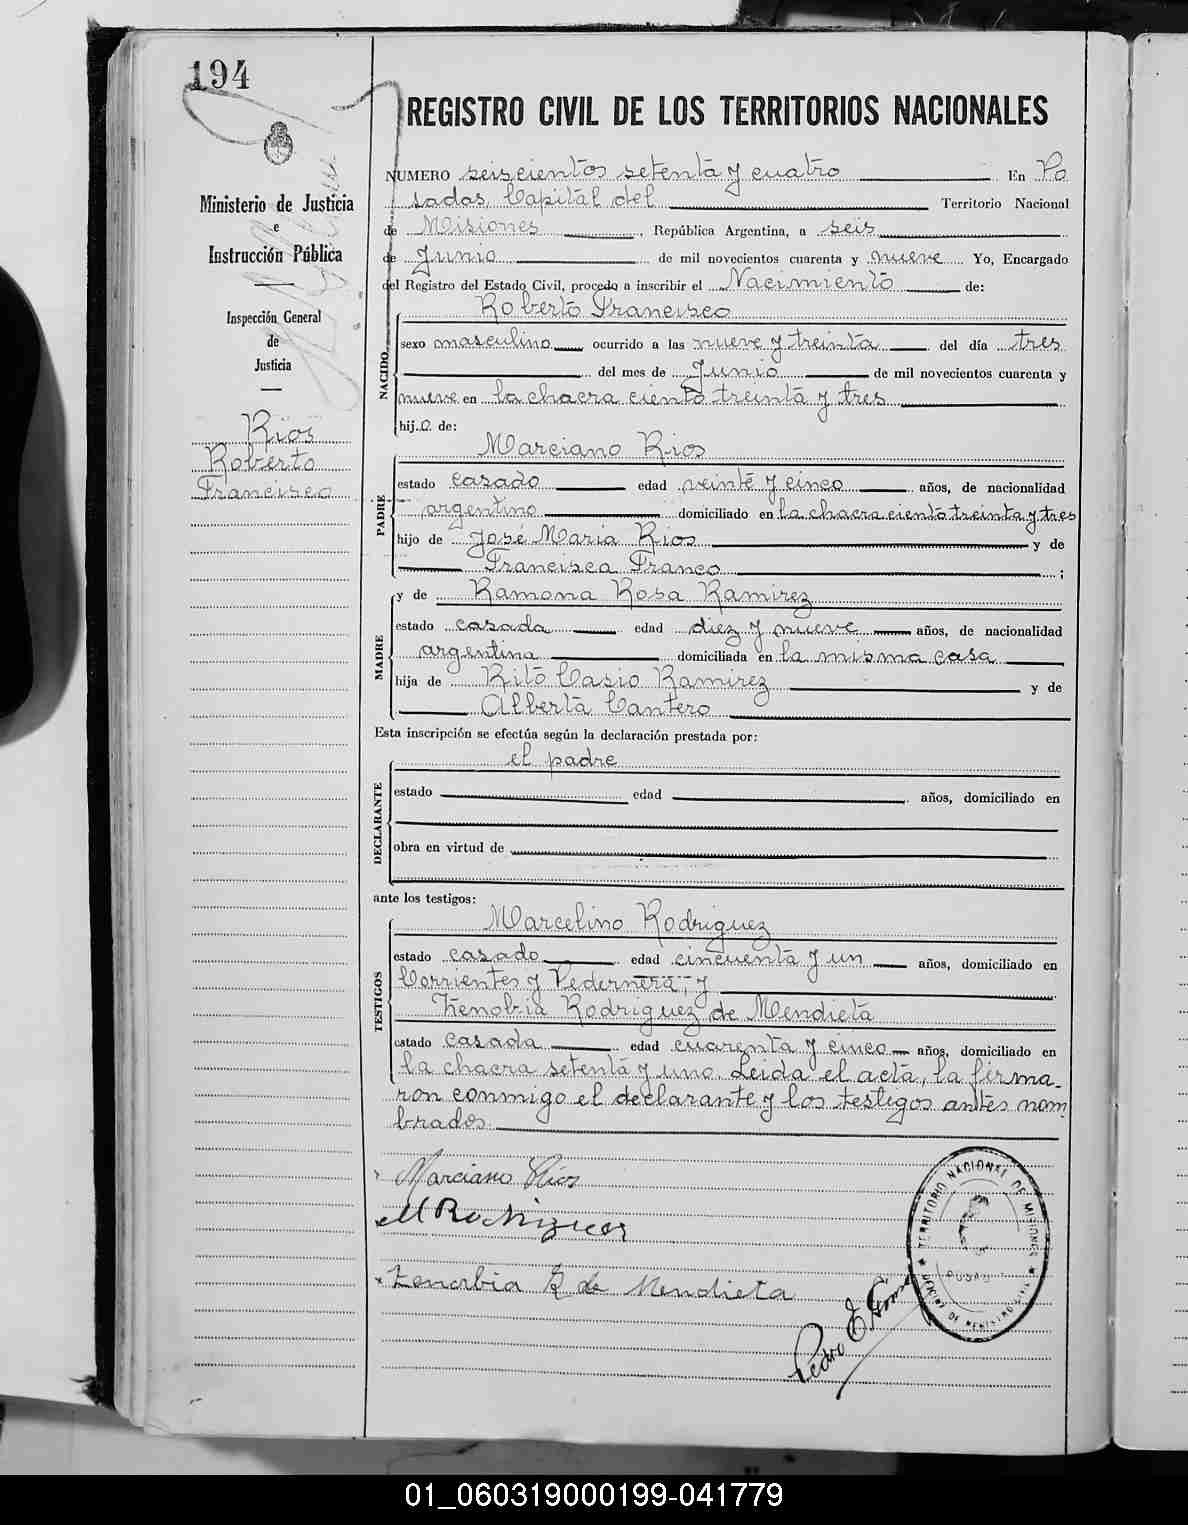 194
REGISTRO CIVIL DE LOS TERRITORIOS NACIONALES
Ministerio de Justicia
e
Instrucción Pública
Inspección General
de
Justicia
Rios
Roberto
Francisco
NUMERO seiscientos setenta y cuatro En Po
sadas, Capital del Territorio Nacional
de Misiones, República Argentina, a seis
de Junio de mil novecientos cuarenta y nueve Yo, Encargado
del Registro del Estado Civil, procedo a inscribir el Nacimiento de:
NACIDO
Roberto Francisco
sexo masculino ocurrido a las nueve y treinta del día tres
del mes de Junio de mil novecientos cuarenta y
nueve en la chacra ciento treinta y tres
hij.o de:
PADRE
Marciano Rios
estado casado edad veinte y cinco años, de nacionalidad
argentino domiciliado en la chacra ciento treinta y tres
hijo de José Maria Rios y de
Francisca Franco ;
MADRE
y de Ramona Rosa Ramirez
estado casada edad diez y nueve años, de nacionalidad
argentina domiciliada en la misma casa
hija de Rito Casio Ramirez y de
Alberta Cantero
Esta inscripción se efectúa según la declaración prestada por:
DECLARANTE
el padre
estado edad años, domiciliado en
obra en virtud de
ante los testigos:
TESTIGOS
Marcelino Rodriguez
estado casado edad cincuenta y un años, domiciliado en
Corrientes y Pedernera, y
Zenobia Rodriguez de Mendieta
estado casada edad cuarenta y cinco años, domiciliado en
la chacra setenta y uno. Leida el acta, la firma-
ron conmigo el declarante y los testigos antes nom
brados.
Marciano Rios
M Rodriguez
Zenobia R de Mendieta
Pedro E
TERRITORIO NACIONAL DE MISIONES
POSADAS
OFICINA DE REGISTRO CIVIL
01_060319000199-041779